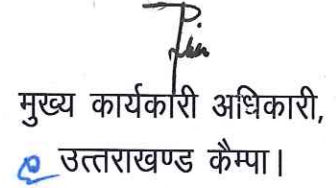 मुख्य कार्यकारी अधिकारी,
उत्तराखण्ड कैम्पा।